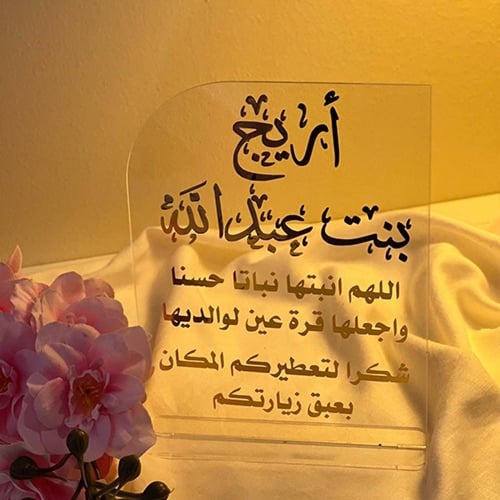 أريج
بنت عبدالله
اللهم انبتها نباتا حسنا
واجعلها قرة عين لوالديها
شكرا لتعطيركم المكان
بعبق زيارتكم